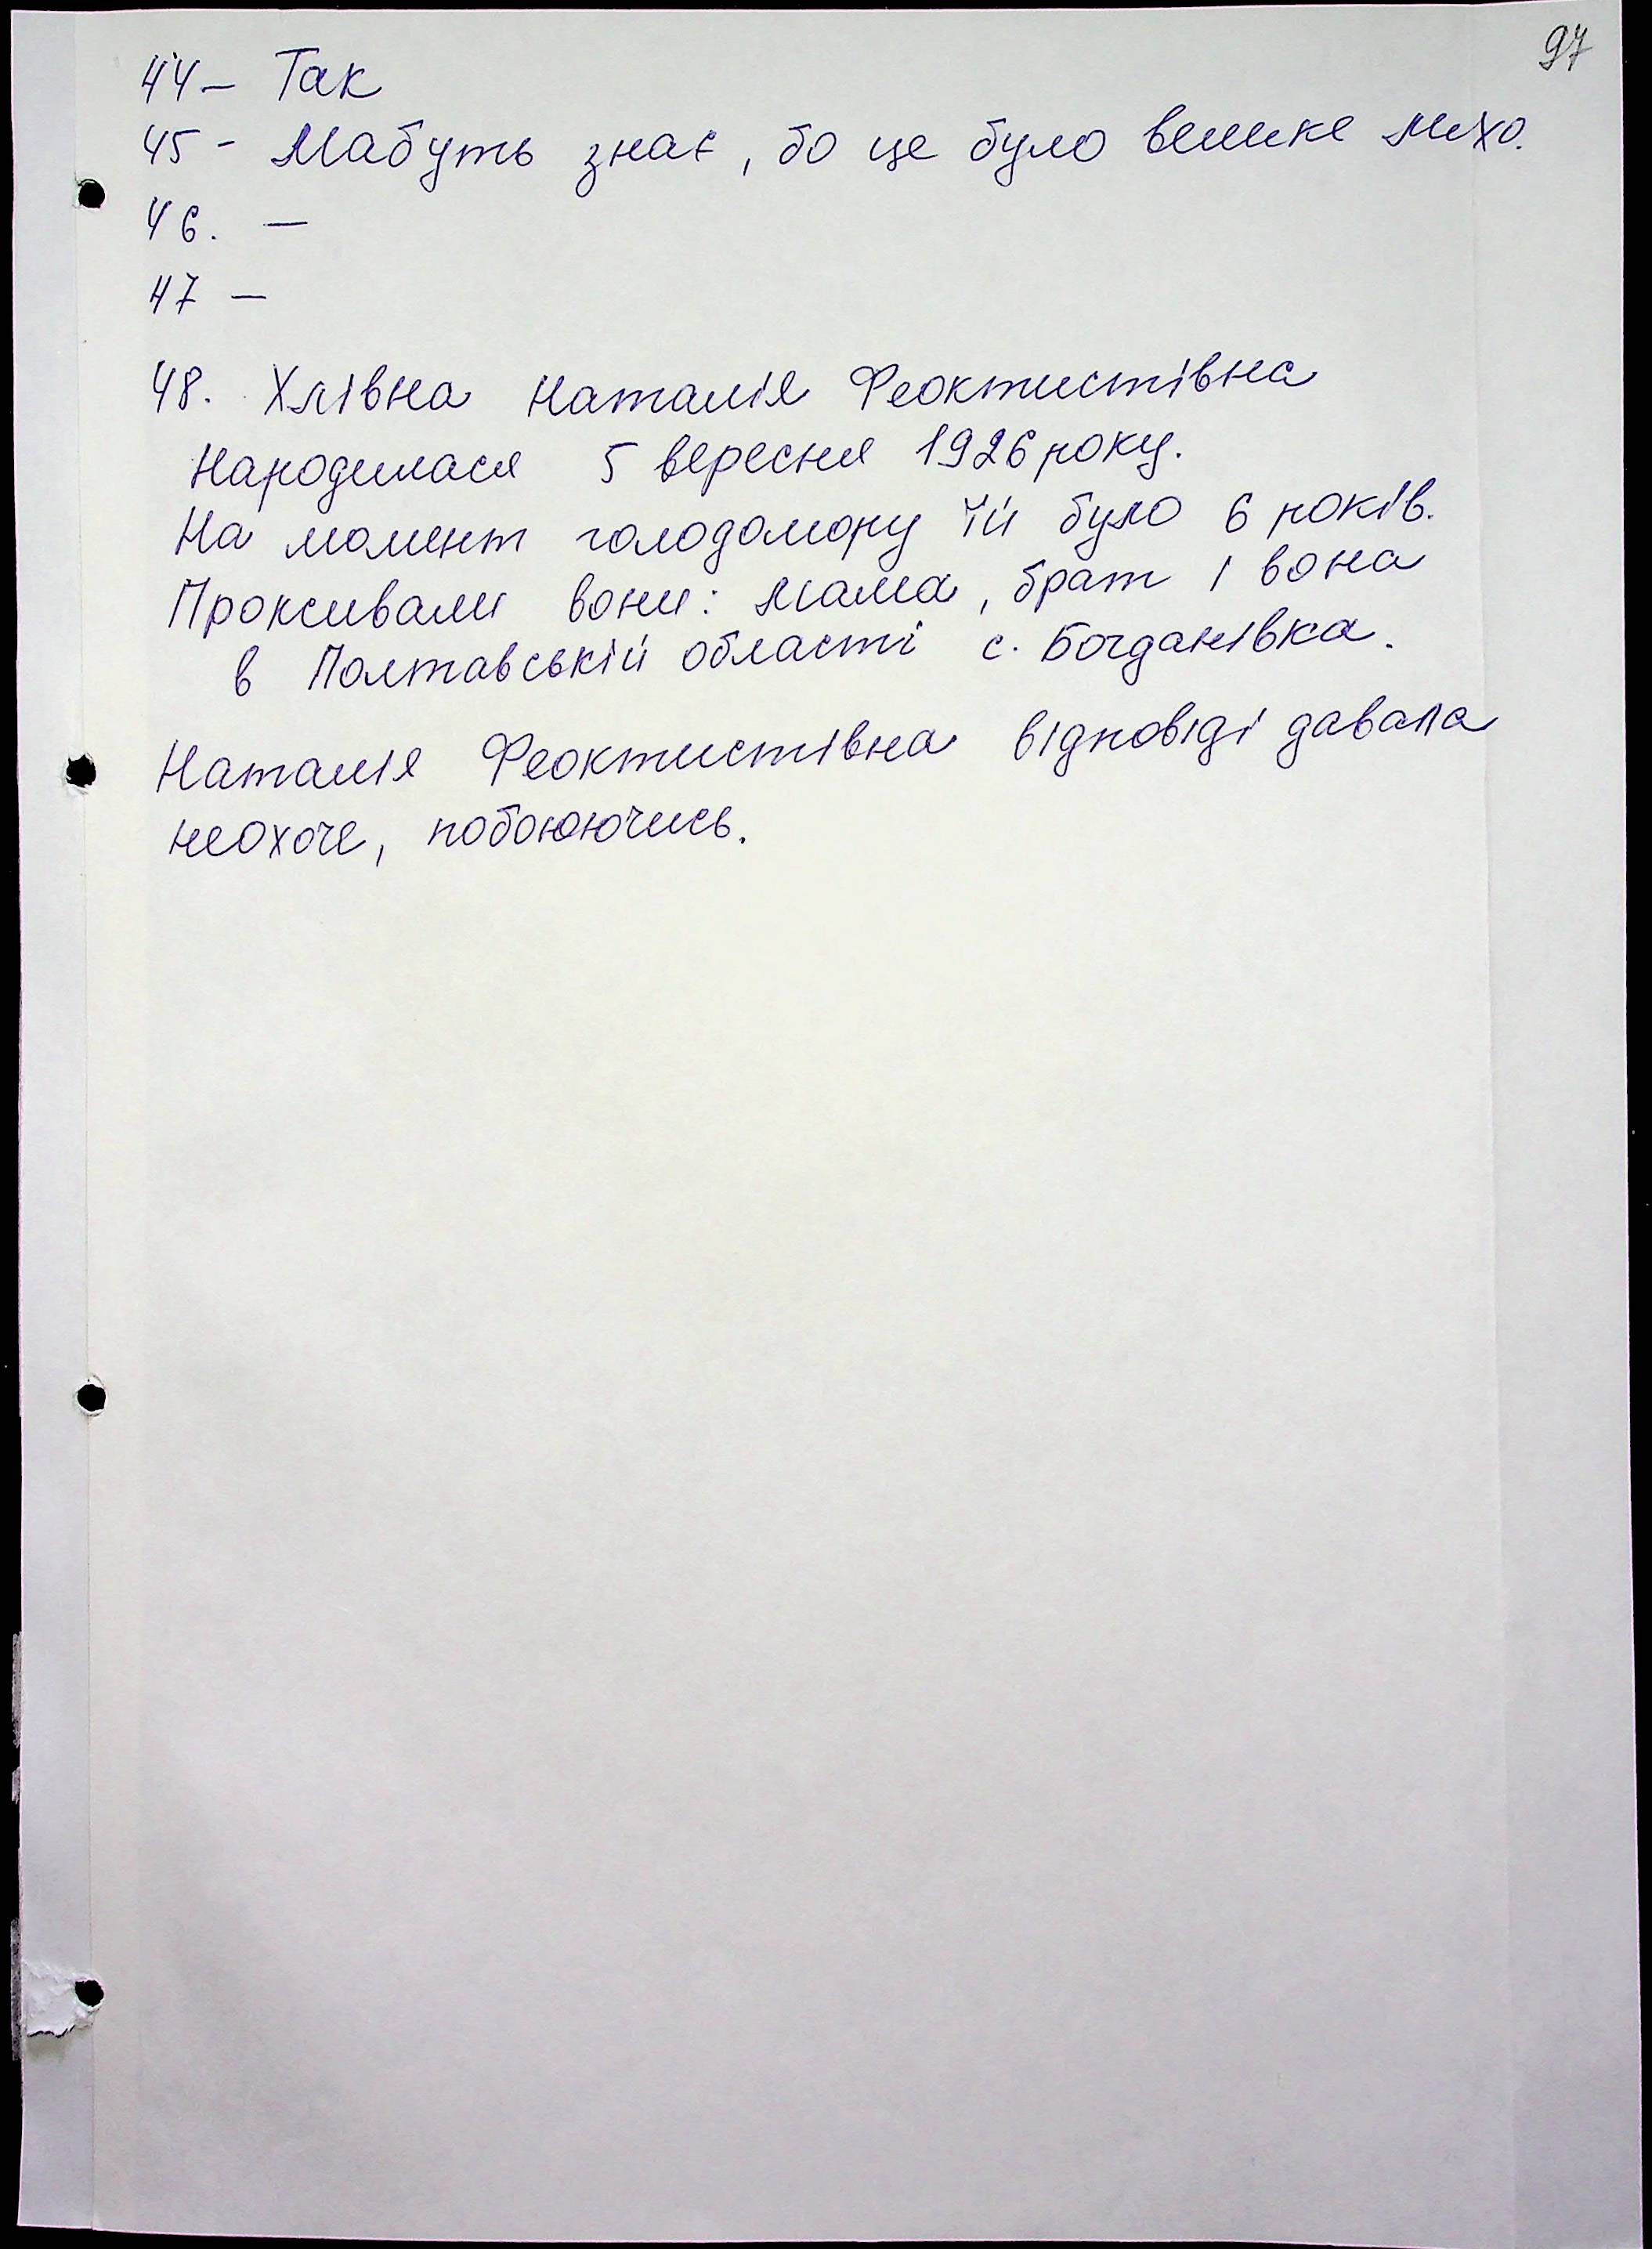 97
44 – Так
45 - Мабуть знає, бо це було велике лихо.
46. —
47 —
48. Хлівна Наталія Феоктистівна
Народилася 5 вересня 1926 року.
На момент голодомору їй було 6 років.
Проживали вони: мама, брат і вона
в Полтавській області с. Богданівка.
Наталія Феоктистівна відповіді давала
неохоче, побоюючись.